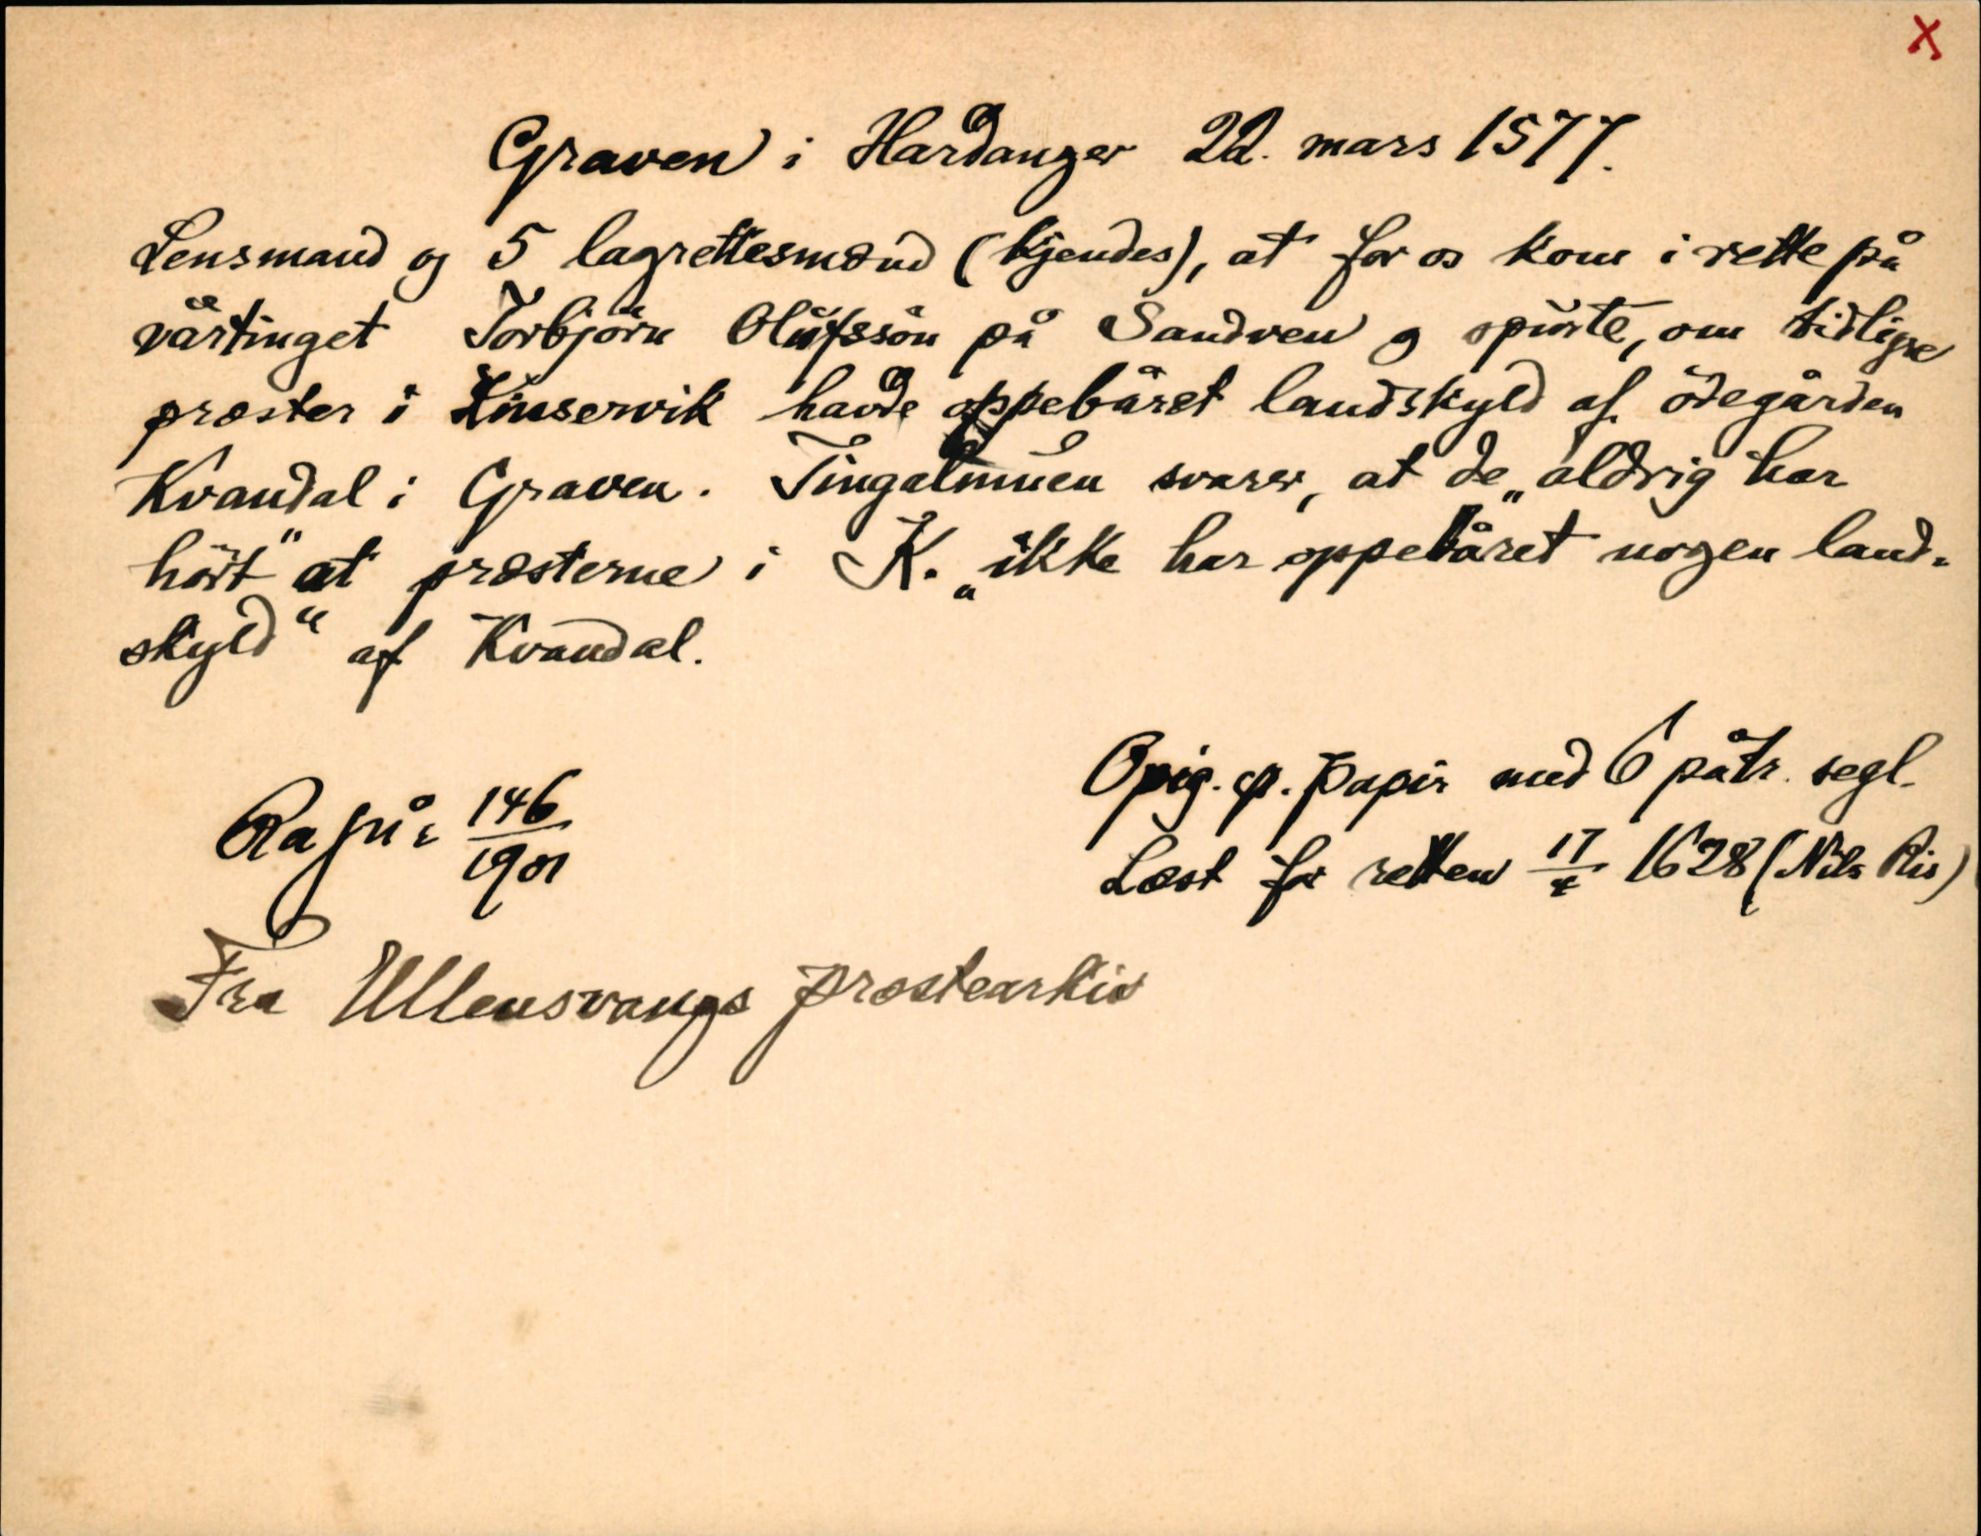 X
Graven i Hardanger 22. mars 1577.
Lensmand og 5 lagrettesmænd (kjendes), at for os kom i rette på
vårtinget Torbjörn Olufssön på Sandven og spurte, om tidligre
præster i Kinservik havde oppebåret landskyld af ödegården
Kvandal i Graven. Tingalmuen svarer, at de „aldrig har
hört“ at præsterne i K. „ikke har oppebåret nogen land-
skyld“ af Kvandal.
Orig. p. papir med 6 påtr. segl.
Læst for retten 17/4 1628 (Nils Ris)
Ra 146/1901
Fra Ullensvangs prestearkiv